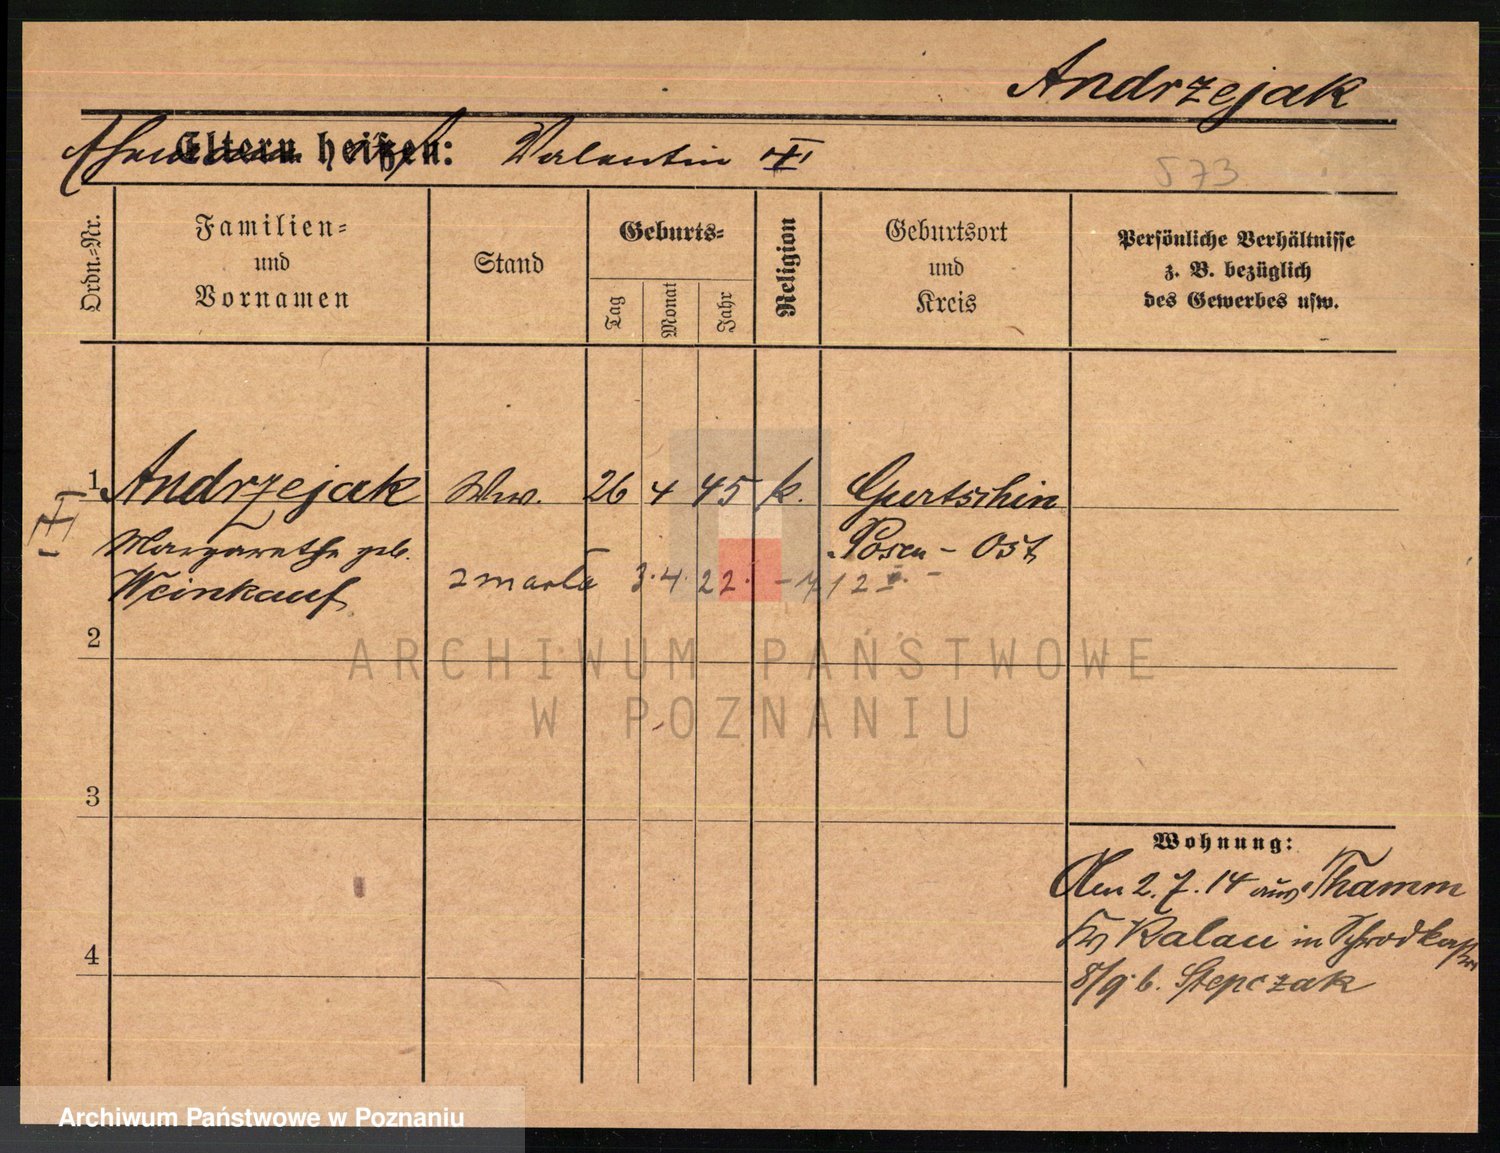 Andrzejak
Eltern heißen: Valentin
573
Ordn.-Nr.
Familien-
und
Vornamen
Stand
Geburts-
Tag
Monat
Jahr
Religion
Geburtsort
und
Kreis
Persönliche Verhältnisse
z. B. bezüglich
des Gewerbes usw.
1 Andrzejak Ww. 26 4 45 k. Gurtschin
Margarethe geb. Posen-Ost
Weinkauf zmarła 3.4.22.
2
ARCHIWUM PAŃSTWOWE
W POZNANIU
3
Wohnung:
Am 2.7.14 aus Thamm
Kr Kalau in Schrodkastr
8/9 b. Stepczak
4
Archiwum Państwowe w Poznaniu